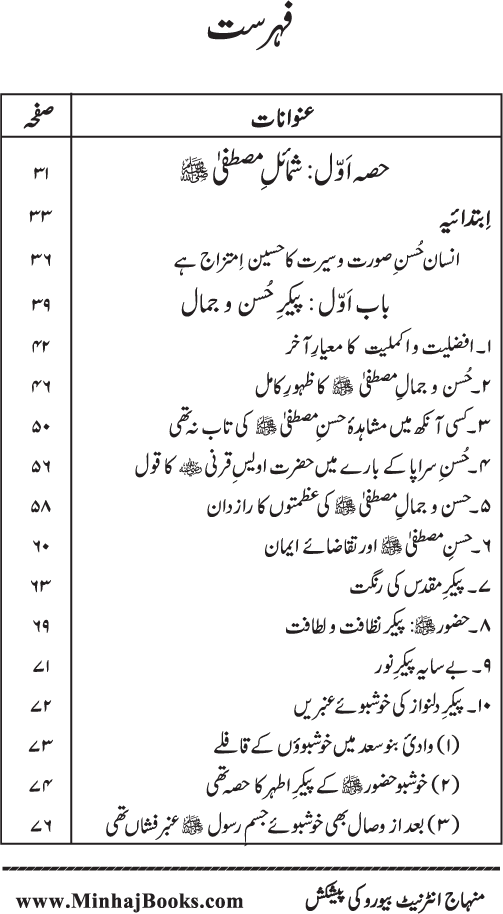 فہرست
عنوانات صفحہ
حصہ اَوّل: شمائلِ مصطفیٰ ﷺ ۳۱
اِبتدائیہ ۳۳
انسان حُسنِ صورت و سیرت کا حسین اِمتزاج ہے ۳۶
باب اَوّل: پیکرِ حُسن و جمال ۳۹
۱۔ افضلیت و اکملیت کا معیارِ آخر ۴۲
۲۔ حُسن و جمالِ مصطفیٰ ﷺ کا ظہورِ کامل ۴۶
۳۔ کسی آنکھ میں مشاہدۂ حسنِ مصطفیٰ ﷺ کی تاب نہ تھی ۵۰
۴۔ حُسنِ سراپا کے بارے میں حضرت اویسِ قرنی ؓ کا قول ۵۶
۵۔ حسن و جمالِ مصطفیٰ ﷺ کی عظمتوں کا راز دان ۵۸
۶۔ حسنِ مصطفیٰ ﷺ اور تقاضائے ایمان ۶۰
۷۔ پیکرِ مقدس کی رنگت ۶۳
۸۔ حضور ﷺ: پیکرِ نظافت و لطافت ۶۹
۹۔ بے سایہ پیکرِ نور ۷۱
۱۰۔ پیکرِ دلنواز کی خوشبوئے عنبریں ۷۲
(۱) وادئ بنو سعد میں خوشبوؤں کے قافلے ۷۳
(۲) خوشبو حضور ﷺ کے پیکرِ اطہر کا حصہ تھی ۷۴
(۳) بعد از وصال بھی خوشبوئے جسمِ رسول ﷺ عنبر فشاں تھی ۷۶
منہاج انٹرنیٹ بیورو کی پیشکش www.MinhajBooks.com